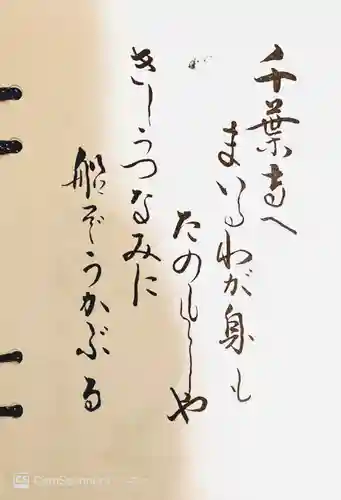 千葉寺へ
まいるわが身も
たのもしや
きしうつなみに
船ぞうかぶる
CS CamScanner